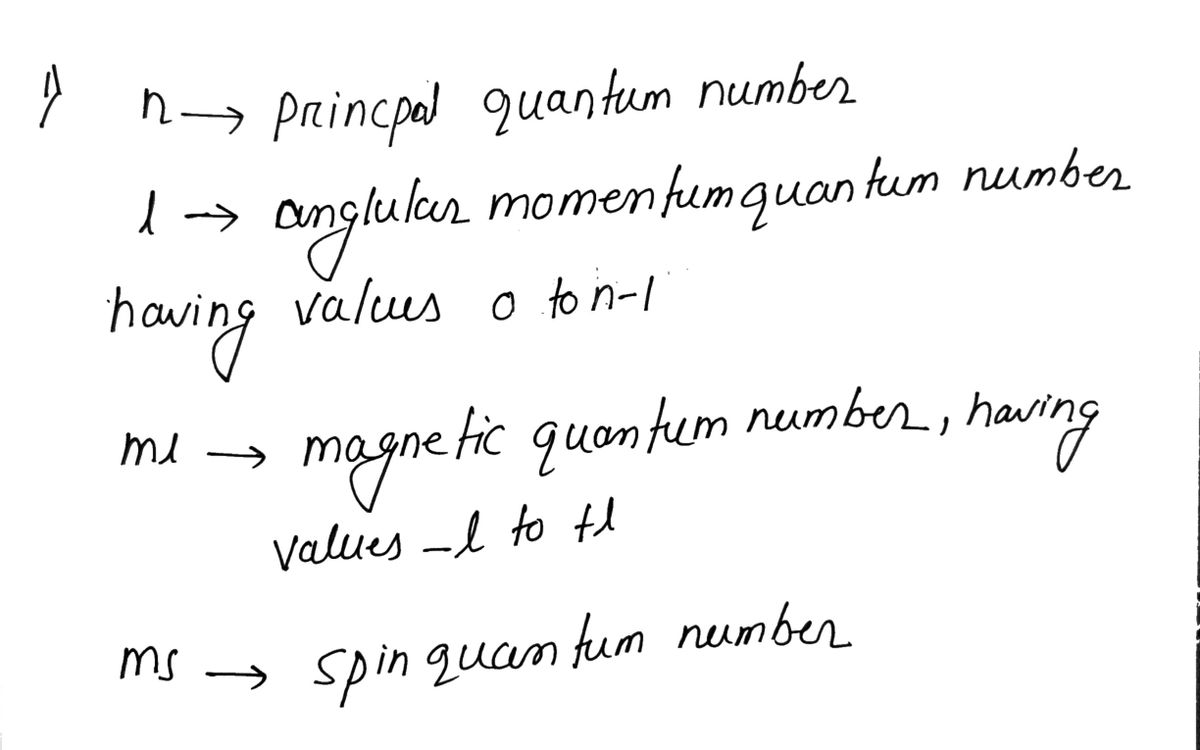 1) n → princpal quantum number
l → anglular momentum quantum number
having values 0 to n-1
ml → magnetic quantum number, having
values -l to +l
ms → spin quantum number